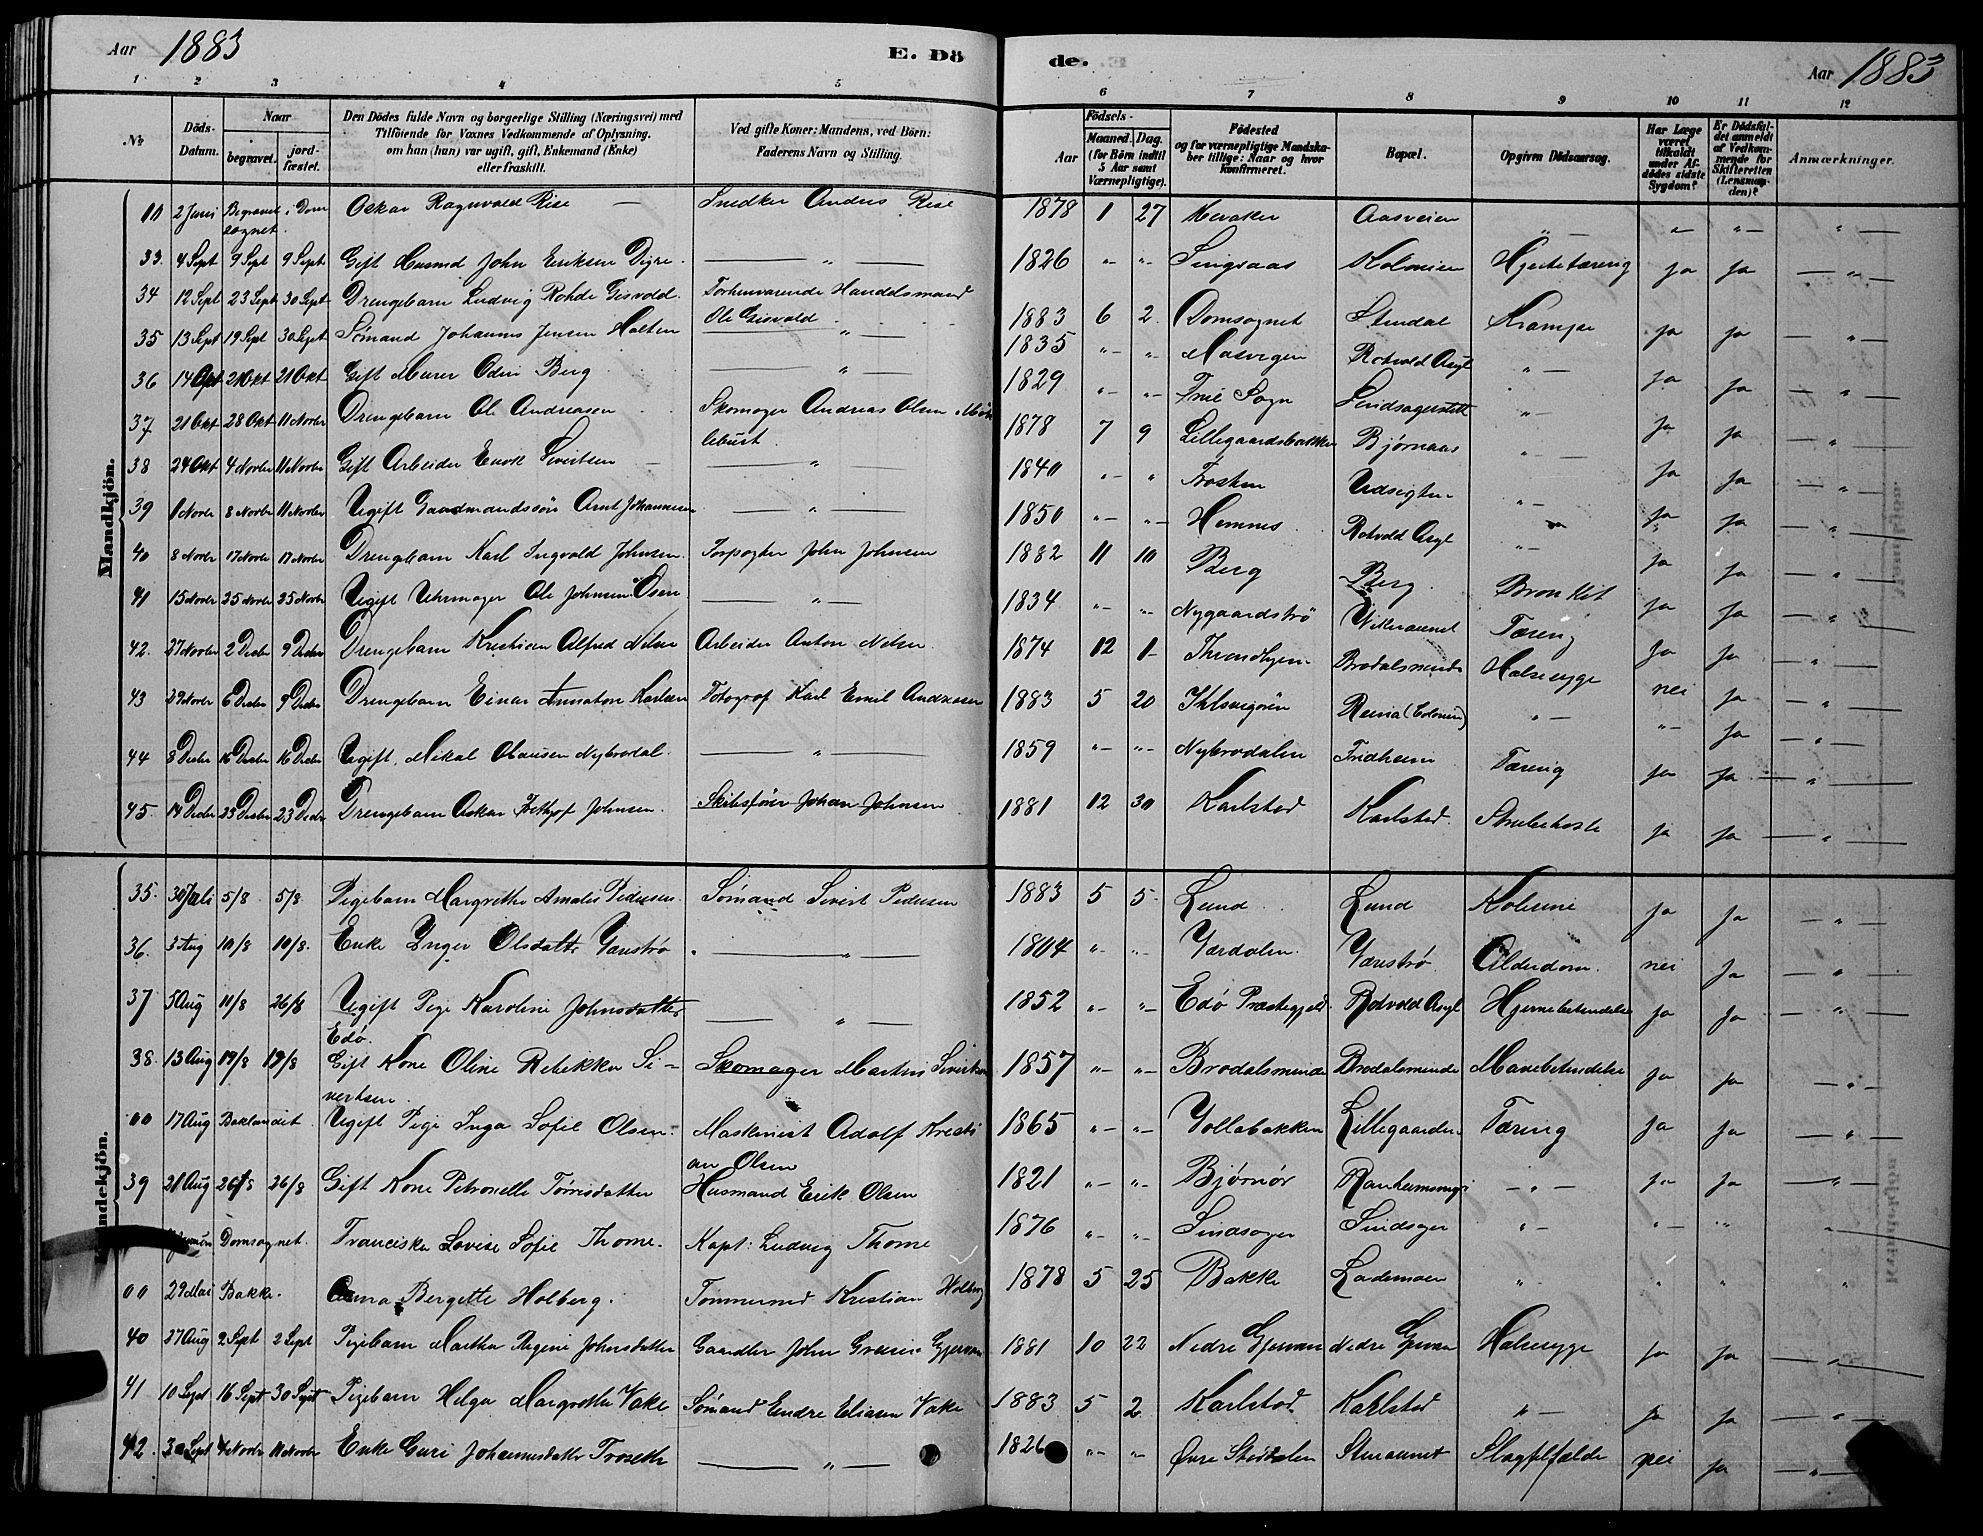 Aar 1883 E. Dö de. Aar 1883
1 2 3 4 5 6 7 8 9 10 11 12
Nr. Döds-Datum. Naar begravet. jord-fæstet. Den Dödes fulde Navn og borgerlige Stilling (Næringsvei) med Tilföiende for Voxnes Vedkommende af Oplysning, om han (hun) var ugift, gift, Enkemand (Enke) eller fraskilt. Ved gifte Koner: Mandens, ved Börn: Faderens Navn og Stilling. Födsels- Aar Maaned. Dag. (for Börn indtil 5 Aar samt Værnepligtige). Födested og for værnepligtige Mandskaber tillige: Naar og hvor konfirmeret. Bopæl. Opgiven Dödsaarsag. Har Læge været tilkaldt under Afdödes sidste Sygdom? Er Dödsfaldet anmeldt af Vedkommende for Skifteretten (Lensmanden)? Anmærkninger.
Mandkjön.
2 Juni Begravet i Dom sognet. Oskar Ragnvald Rise — Snedker Anders Rise 1878 1 27 Meraker Aasveien " — " — " — " —
33. 4 Sept 9 Sept 9 Sept Gift Husmd John Eriksen Digre. — " — 1826 " - " - Singsaas Kolonien Hjertetæring ja ja — " —
34 12 Sept 23 Sept 30 Sept Drengebarn Ludvig Rohde Gisvold. Forhenværende Handelsmand Ole Gisvold 1883 6 2 Domsognet Stendal Krampe ja ja — " —
35 13 Sept 19 Sept 30 Sept Sømand Johannes Jensen Holten — " — 1835 " - " - Mosvigen Rotvold Asyl " — ja ja — " —
36 14 Okt 21 Okt Gift Murer Odin Berg — " — 1829 " - " - Frue Sogn " — ja ja — " —
37 21 Okt 28 Okt 11 Novbr Drengebarn Ole Andreasen Skomager Andreas Olsen 1878 7 9 Lillegaardsbakken Bjørnaas " — ja ja — " —
38 24 Okt 4 Novbr 11 Novbr Gift Arbeider Sivertsen — " — 1840 " - " Frosten Udsigten " — ja ja — " —
39 1 Novbr 8 Novbr 11 Novbr Ugift Gaardmandssøn Arnt Johannesen — " — 1850 " - " - Hemnes Rotvold Asyl " - ja ja — " —
40 8 Novbr 17 Novbr 17 Novbr Drengebarn Karl Ingvald Johnsen. Forpagter John Johnsen 1882 11 10 Berg Berg Bronkit ja ja — " —
41 15 Novbr 25 Novbr 25 Novbr Ugift Uhrmager Ole Johnsen Osen — " — 1834 " - " - Nygaardstrø Vikeraunet Tæring ja ja — " —
42. 27 Novbr 2 Decbr 9 Decbr Drengebarn Kristian Alfred Nilsen Arbeider Anton Nilsen. 1874 12 1 Throndhjem Brodalsmende Halsesyge nei ja — " —
43 29 Novbr 6 Decbr 9 Decbr Drengebarn Einar Annaton Karlsen Fotograf Karl Emil Andreasen 1883 5 20 Ihlsvigøren Reina (Colonien) " — " — ja — " —
44 8 Decbr 16 Decbr 16 Decbr Ugift. Mikal Olausen Nybrodal. — " — 1859 " - " - Nybrodalen Fridheim Tæring ja ja — " —
45 14 Decbr 23 Decbr 23 Decbr Drengebarn Oskar Frithjof Johnsen. Skibsfører Johan Johnsen 1881 12 30 Karlstad Karlstad. Strubehoste ja ja — " —
35. 30 Juli 5/8 5/8 Pigebarn Margrethe Amalie Pedersen. Sømand Sivert Pedersen 1883 5 5 Lund Lund Kolerine ja ja — " —
36. 3 Aug 10/8 10/8. Enke Inger Olsdatter Vanstrø — " — 1804 " - " - Værdalen. Alderdom. nei ja — " —
37 5 Aug 11/8 26/8 Ugift Pige Karoline Johnsdatter Edø. — " — 1852 " - " - Edø Præstegjeld Rotvold Asyl Hjernebetændelse ja ja — " —
38. 13 Aug 19/8 19/8 Gift Kone Oline Rebekka Si=vertsen Skomager Martin Sivertsen 1857 " - " - Brodalsmende Brodalsmende Mavebetændelse ja ja — " —
00 17 Aug Baklandet Ugift Pige Inga Sofie Olsen. Maskinist Adolf Kristian Olsen 1865 " - " - Vollabakken Lillegaarden Tæring ja ja — " —
39 21 Aug 26/8 26/8 Gift Kone Petronelle Tørrisdatter Husmand Erik Olsen 1821 " - " - Bjørnør — " — ja ja — " —
Domsognet. Franciska Lovise Sofie Thorne. Kapt: Ludvig Thorne 1876 " - " - Sindsager Sindsager " — " — " "
00 29 Mai Bakke. Anna Bergette Holberg. Tømmermd Kristian Holberg 1878 5 25 Bakke Lademoen " " " "
40 27 Aug 2 Sept 2 Sept Pigebarn Martha Regine Johnsdatter Gaardbr John 1881 10 22 Nedre Gjervan Nedre Gjervan Halsesyge ja ja — " —
41 10 Sept 16 Sept 30 Sept Pigebarn Helga Margrethe Vake Sømand Endre Eliasen Vake 1883 5 2 Karlstad Karlstad " — ja ja — " —
42. 30 Sept 4 Novbr 11 Novbr Enke Guri Johannesdatter Troseth — " — 1826 " - " - Øvre Størdalen Sturaunet Slagtilfælde nei ja — " —